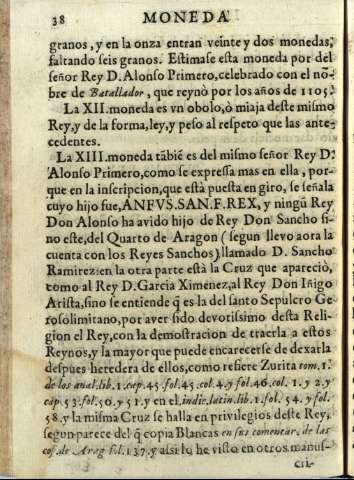 38 MONEDA
granos, y en la onza entran veinte y dos monedas,
faltando seis granos. Estimase esta moneda por del
señor Rey D. Alonso Primero, celebrado con el nõ-
bre de Batallador, que reynò por los años de 1105.
La XII. moneda es vn obolo, ò miaja deste mismo
Rey, y de la forma, ley, y peso al respeto que las ante-
cedentes.
La XIII. moneda tãbiẽ es del mismo señor Rey D.
Alonso Primero, como se expressa mas en ella, por-
que en la inscripcion, que està puesta en giro, se señala
cuyo hijo fue, ANFVS. SAN. F. REX, y ningũ Rey
Don Alonso ha avido hijo de Rey Don Sancho si-
no este, del Quarto de Aragon (segun llevo aora la
cuenta con los Reyes Sanchos) llamado D. Sancho
Ramirez: en la otra parte està la Cruz que apareciò,
como al Rey D. Garcia Ximenez, al Rey Don Iñigo
Arista, sino se entiende q̃ es la del santo Sepulcro Ge-
rosolimitano, por aver sido devotissimo desta Reli-
gion el Rey, con la demostracion de traerla a estos
Reynos, y la mayor que puede encarecerse de dexarla
despues heredera de ellos, como refiere Zurita tom. 1.
de los anal. lib. 1. cap. 45. fol. 45. col. 4. y fol. 46. col. 1. y 2. y
cap. 53. fol. 50. y 51. y en el. indic. latin. lib. 1. fol. 54. y fol.
58. y la misma Cruz se halla en privilegios deste Rey,
segun parece del q̃ copia Blancas en sus comentar. de las
cos. de Arag. fol. 137. y assi lo he visto en otros manus-